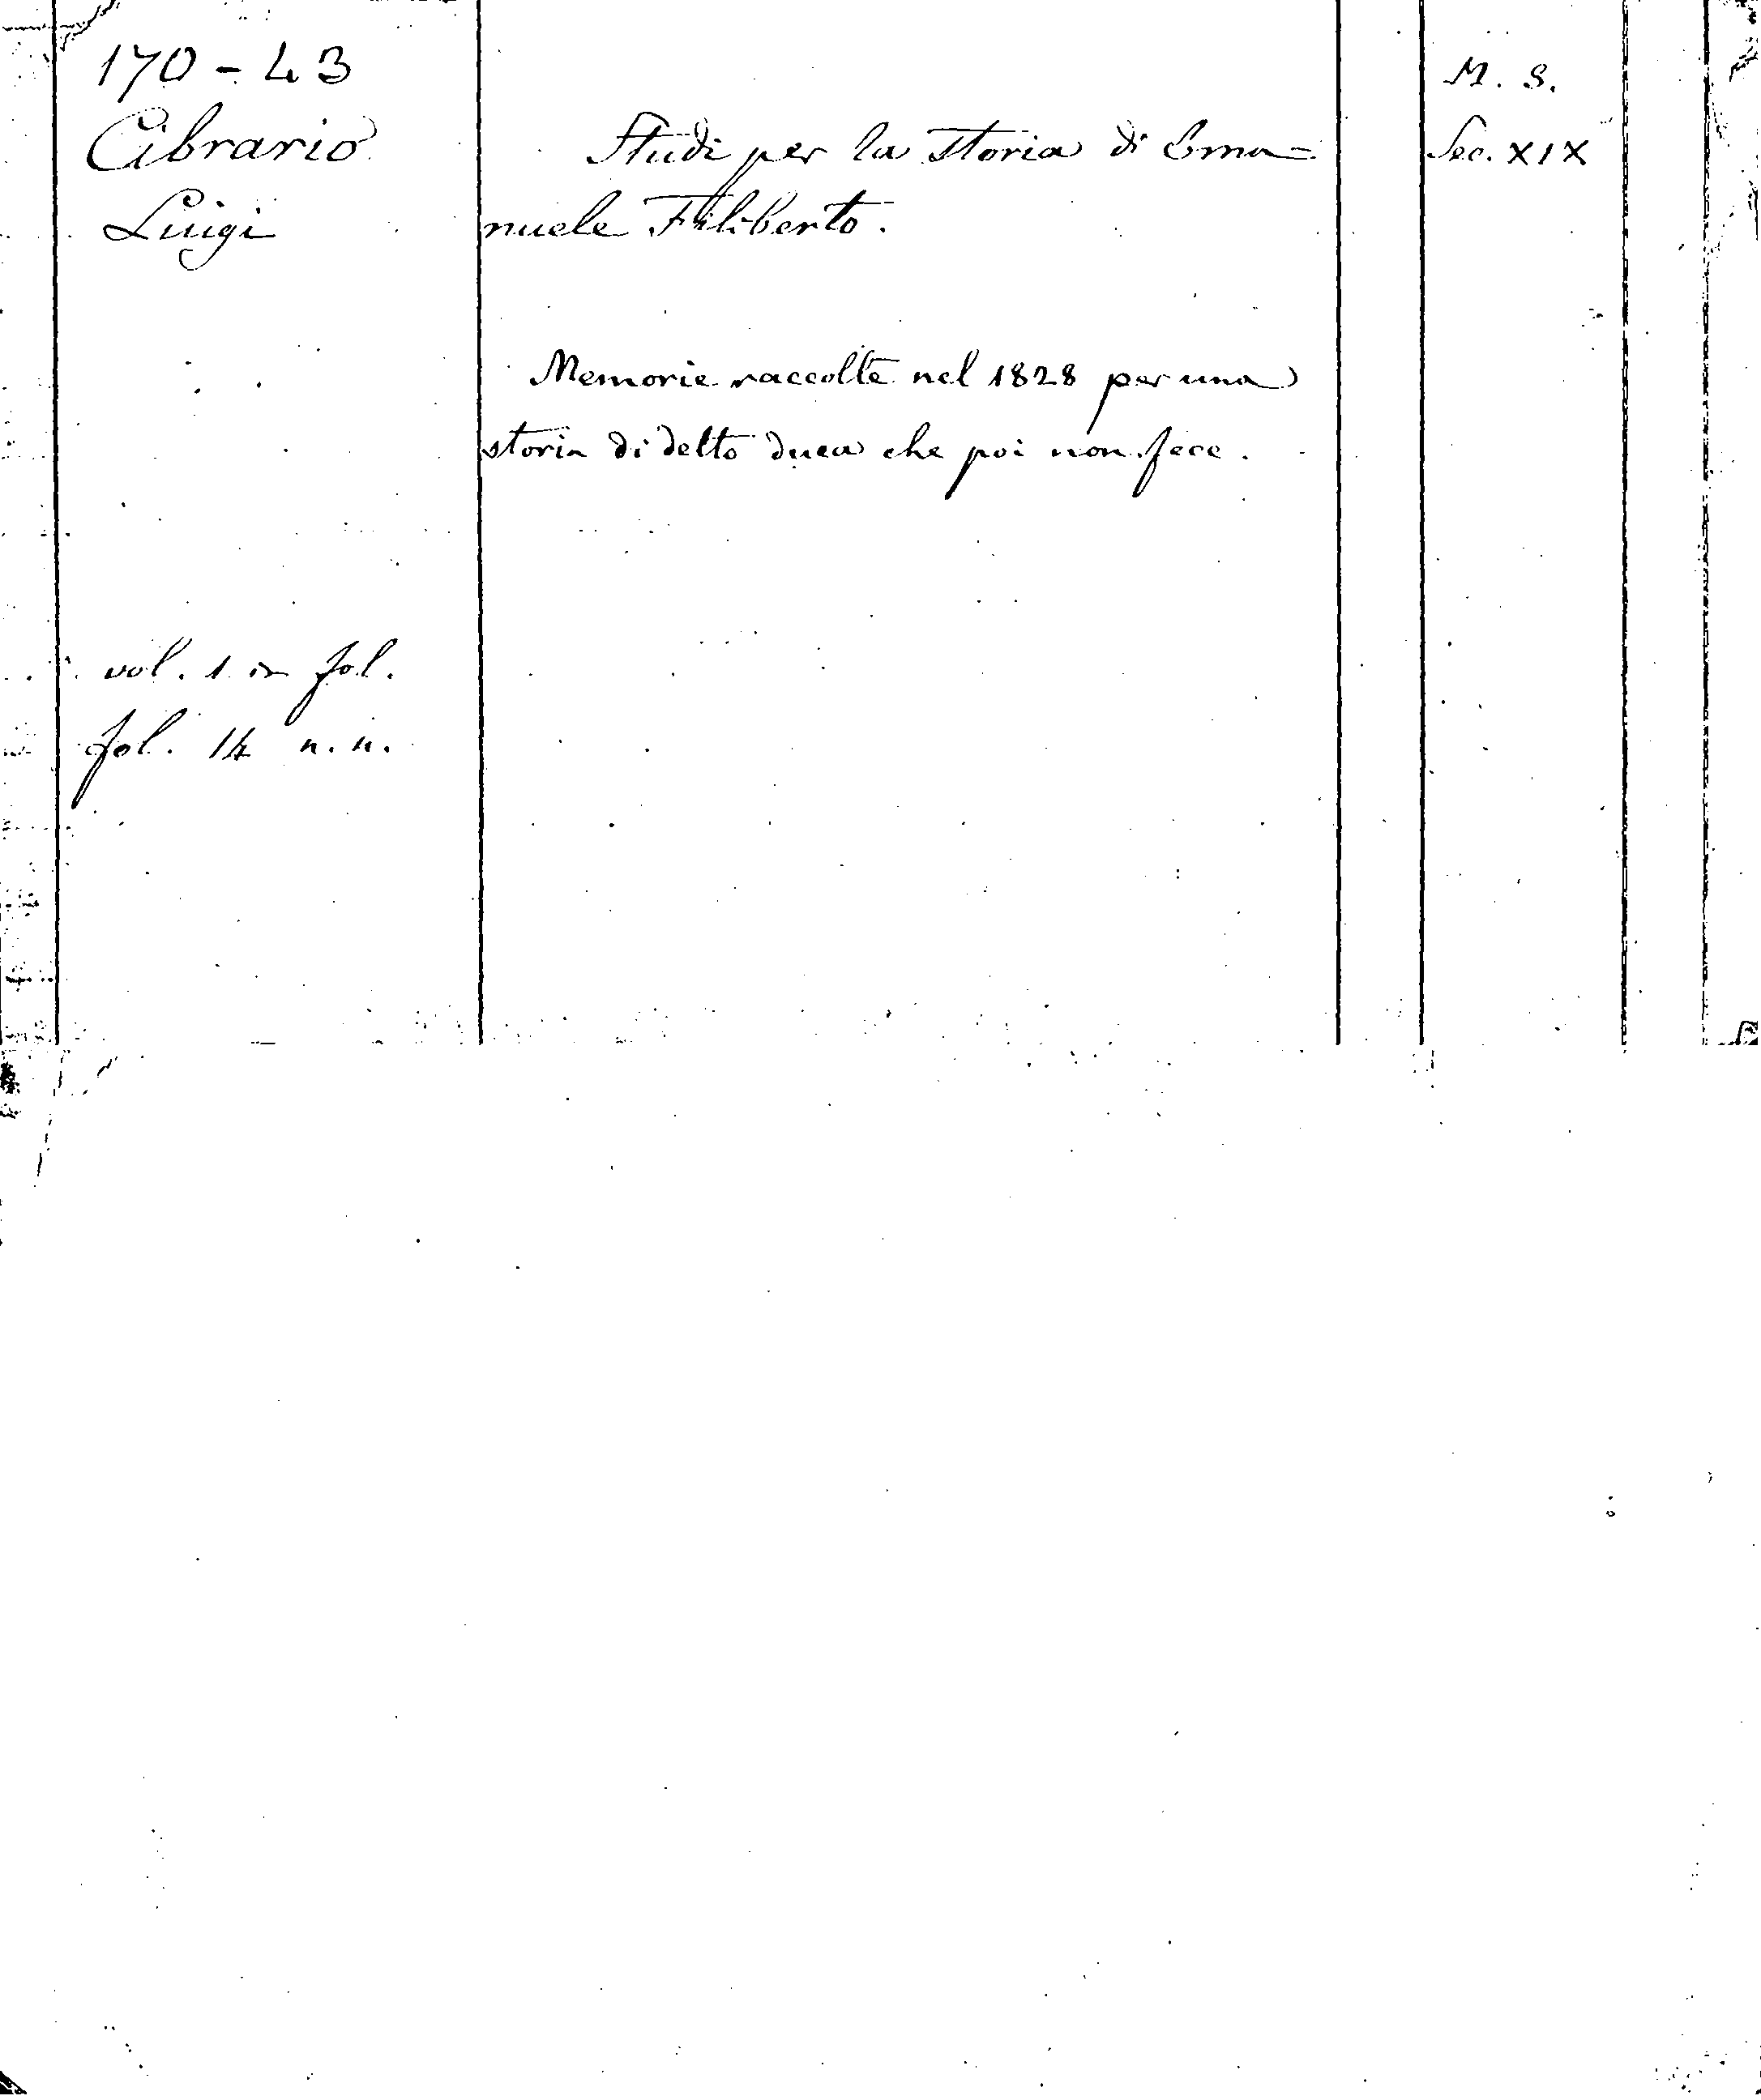 170 - 43
Cibrario
Luigi
vol. 1 in fol.
fol. 14 n. n.
Studi per la Storia di Ema=
nuele Filiberto.
Memorie raccolte nel 1828 per una
storia di detto duca che poi non fece.
M. S.
Sec. XIX